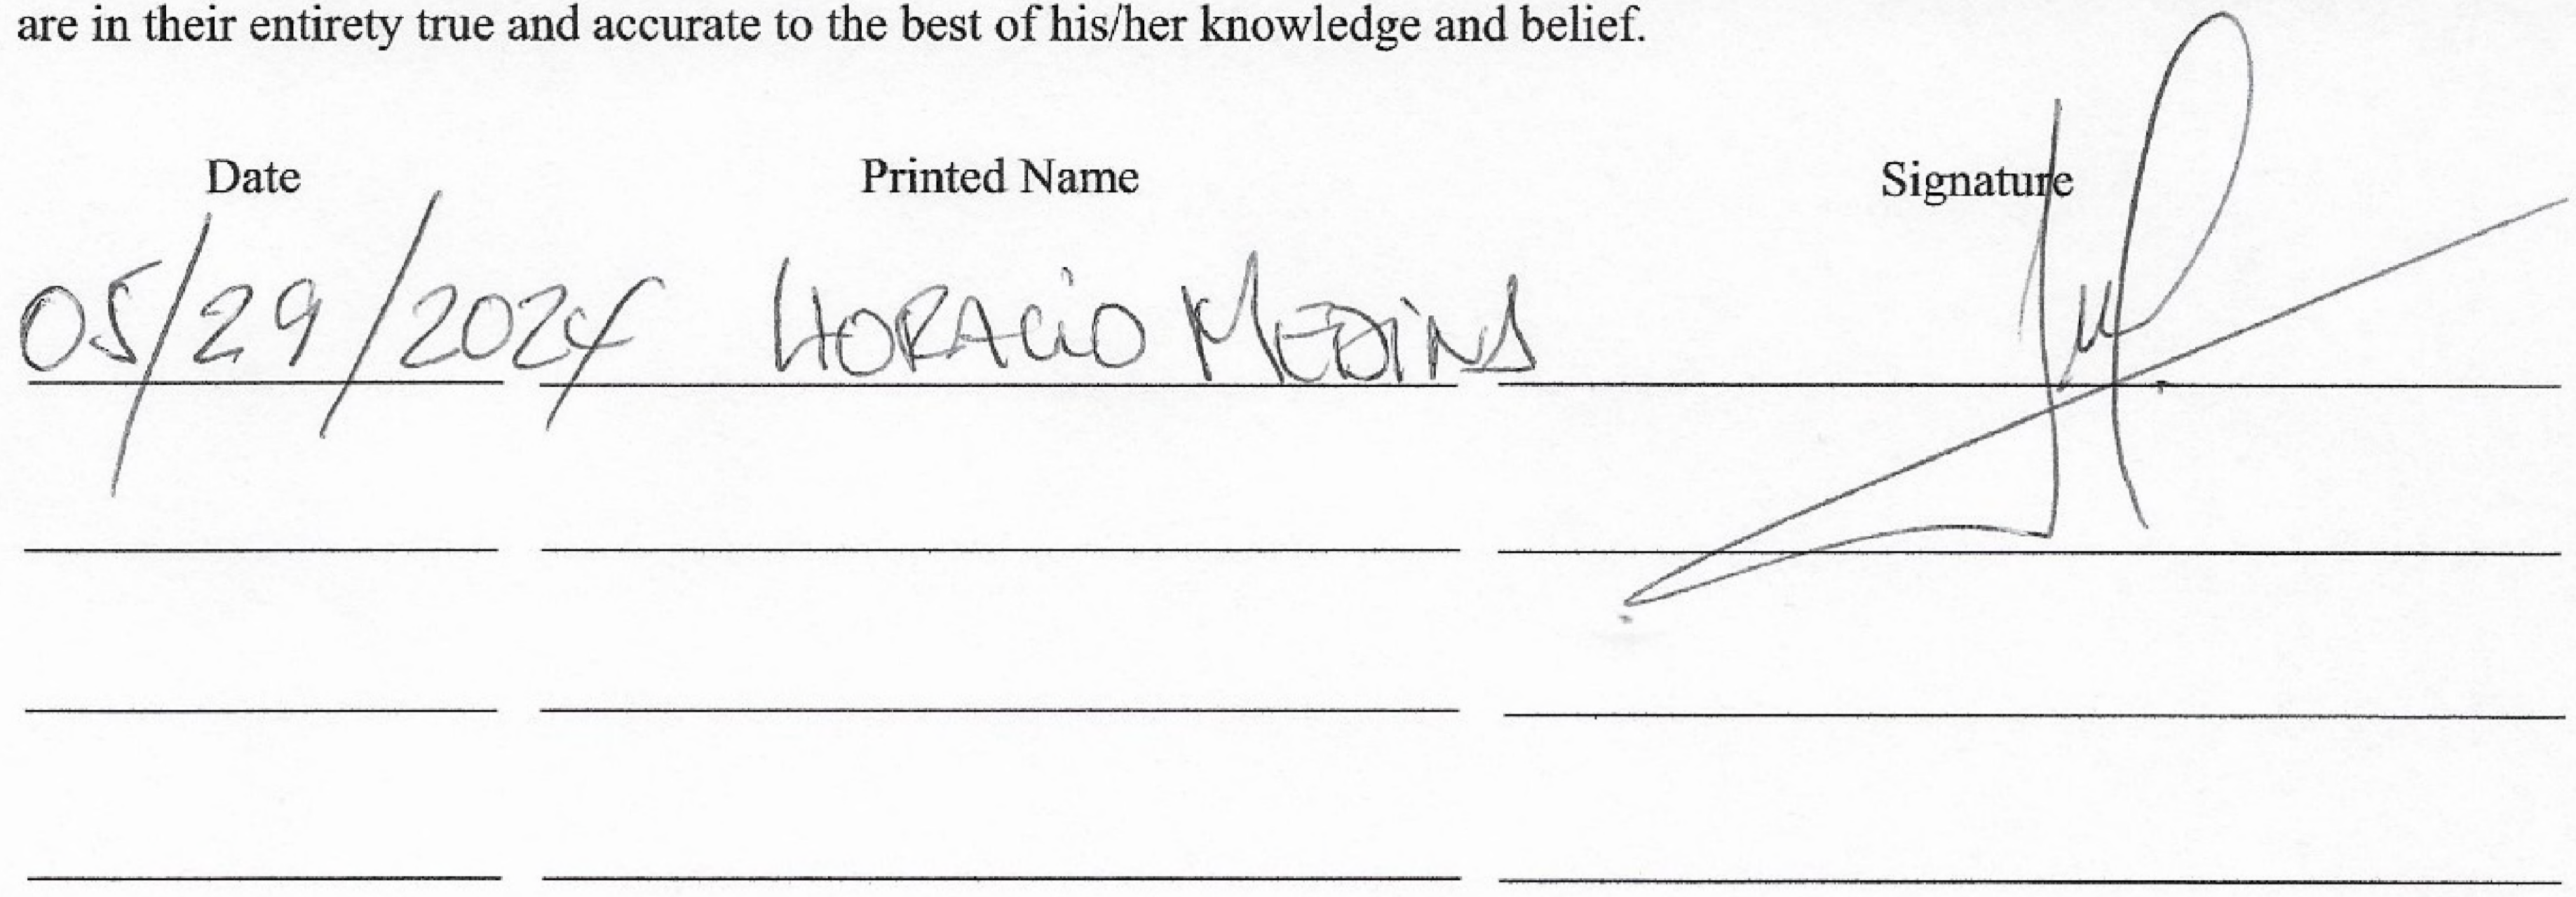 are in their entirety true and accurate to the best of his/her knowledge and belief.
Date Printed Name Signature
05/29/2024 HORACIO MEDINA